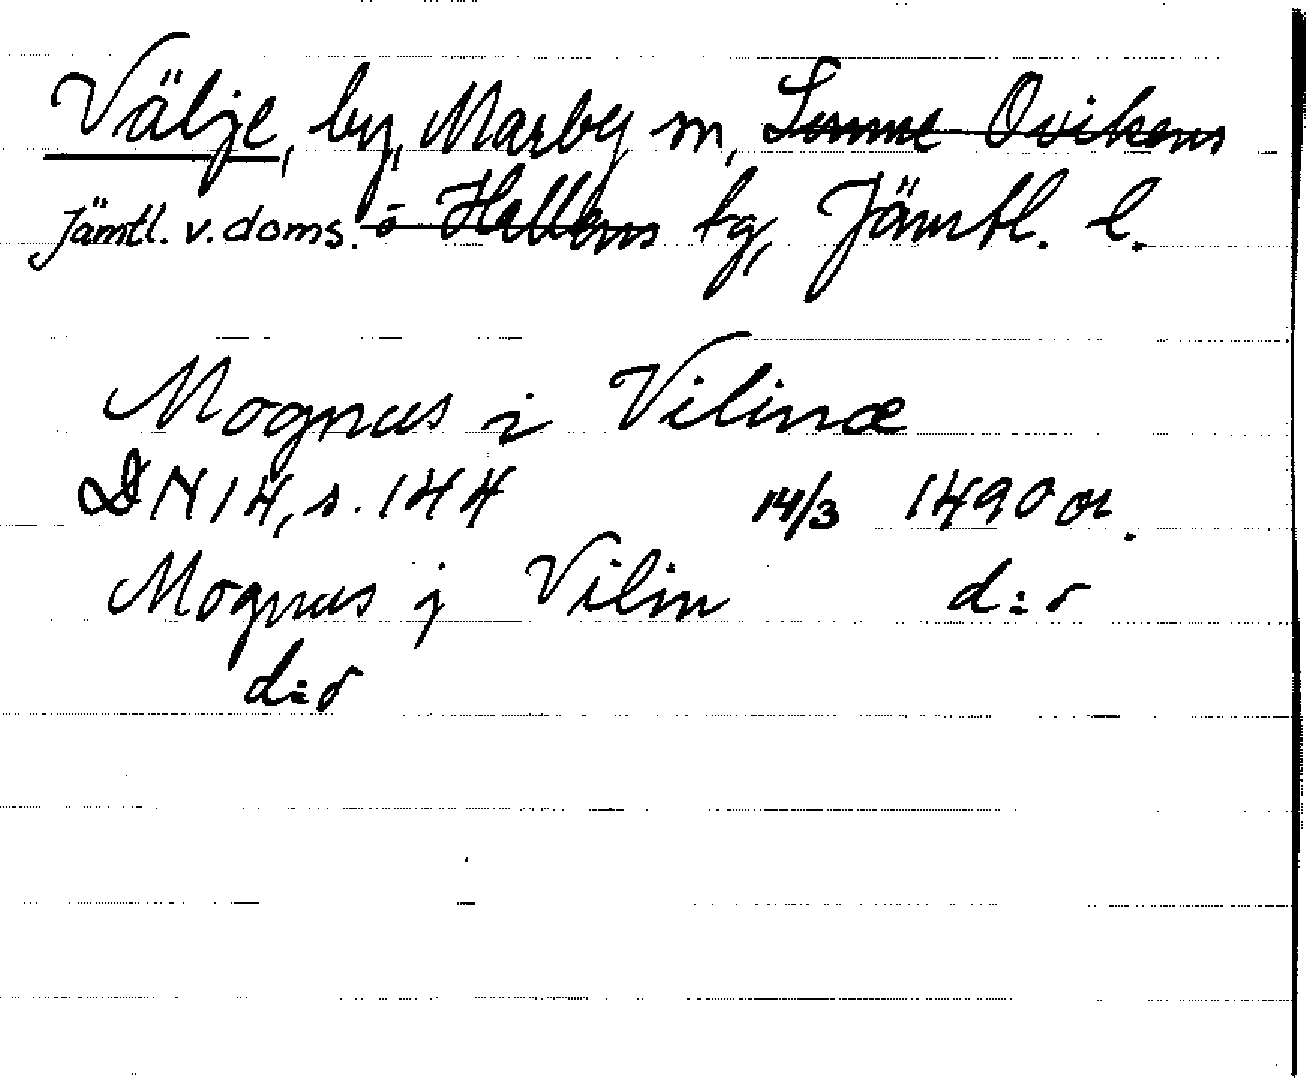 Välje, by, Marby sn, Sunne Ovikens
Jämtl. v. doms. o Hallens tg, Jämtl. l.
Mognus i Vilinæ
DN 14, s. 144 14/3 1490 or.
Mognus j Vilin d:o
d:o